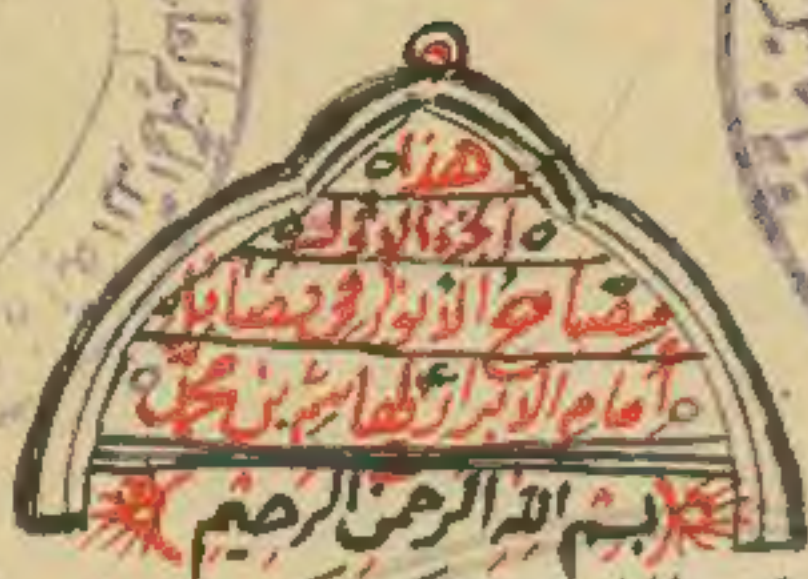 هذا
الجزء الاول
مصباح الأنوار في فضائل
أمام الأبرار لهاشم بن محمد
بسم الله الرحمن الرحيم